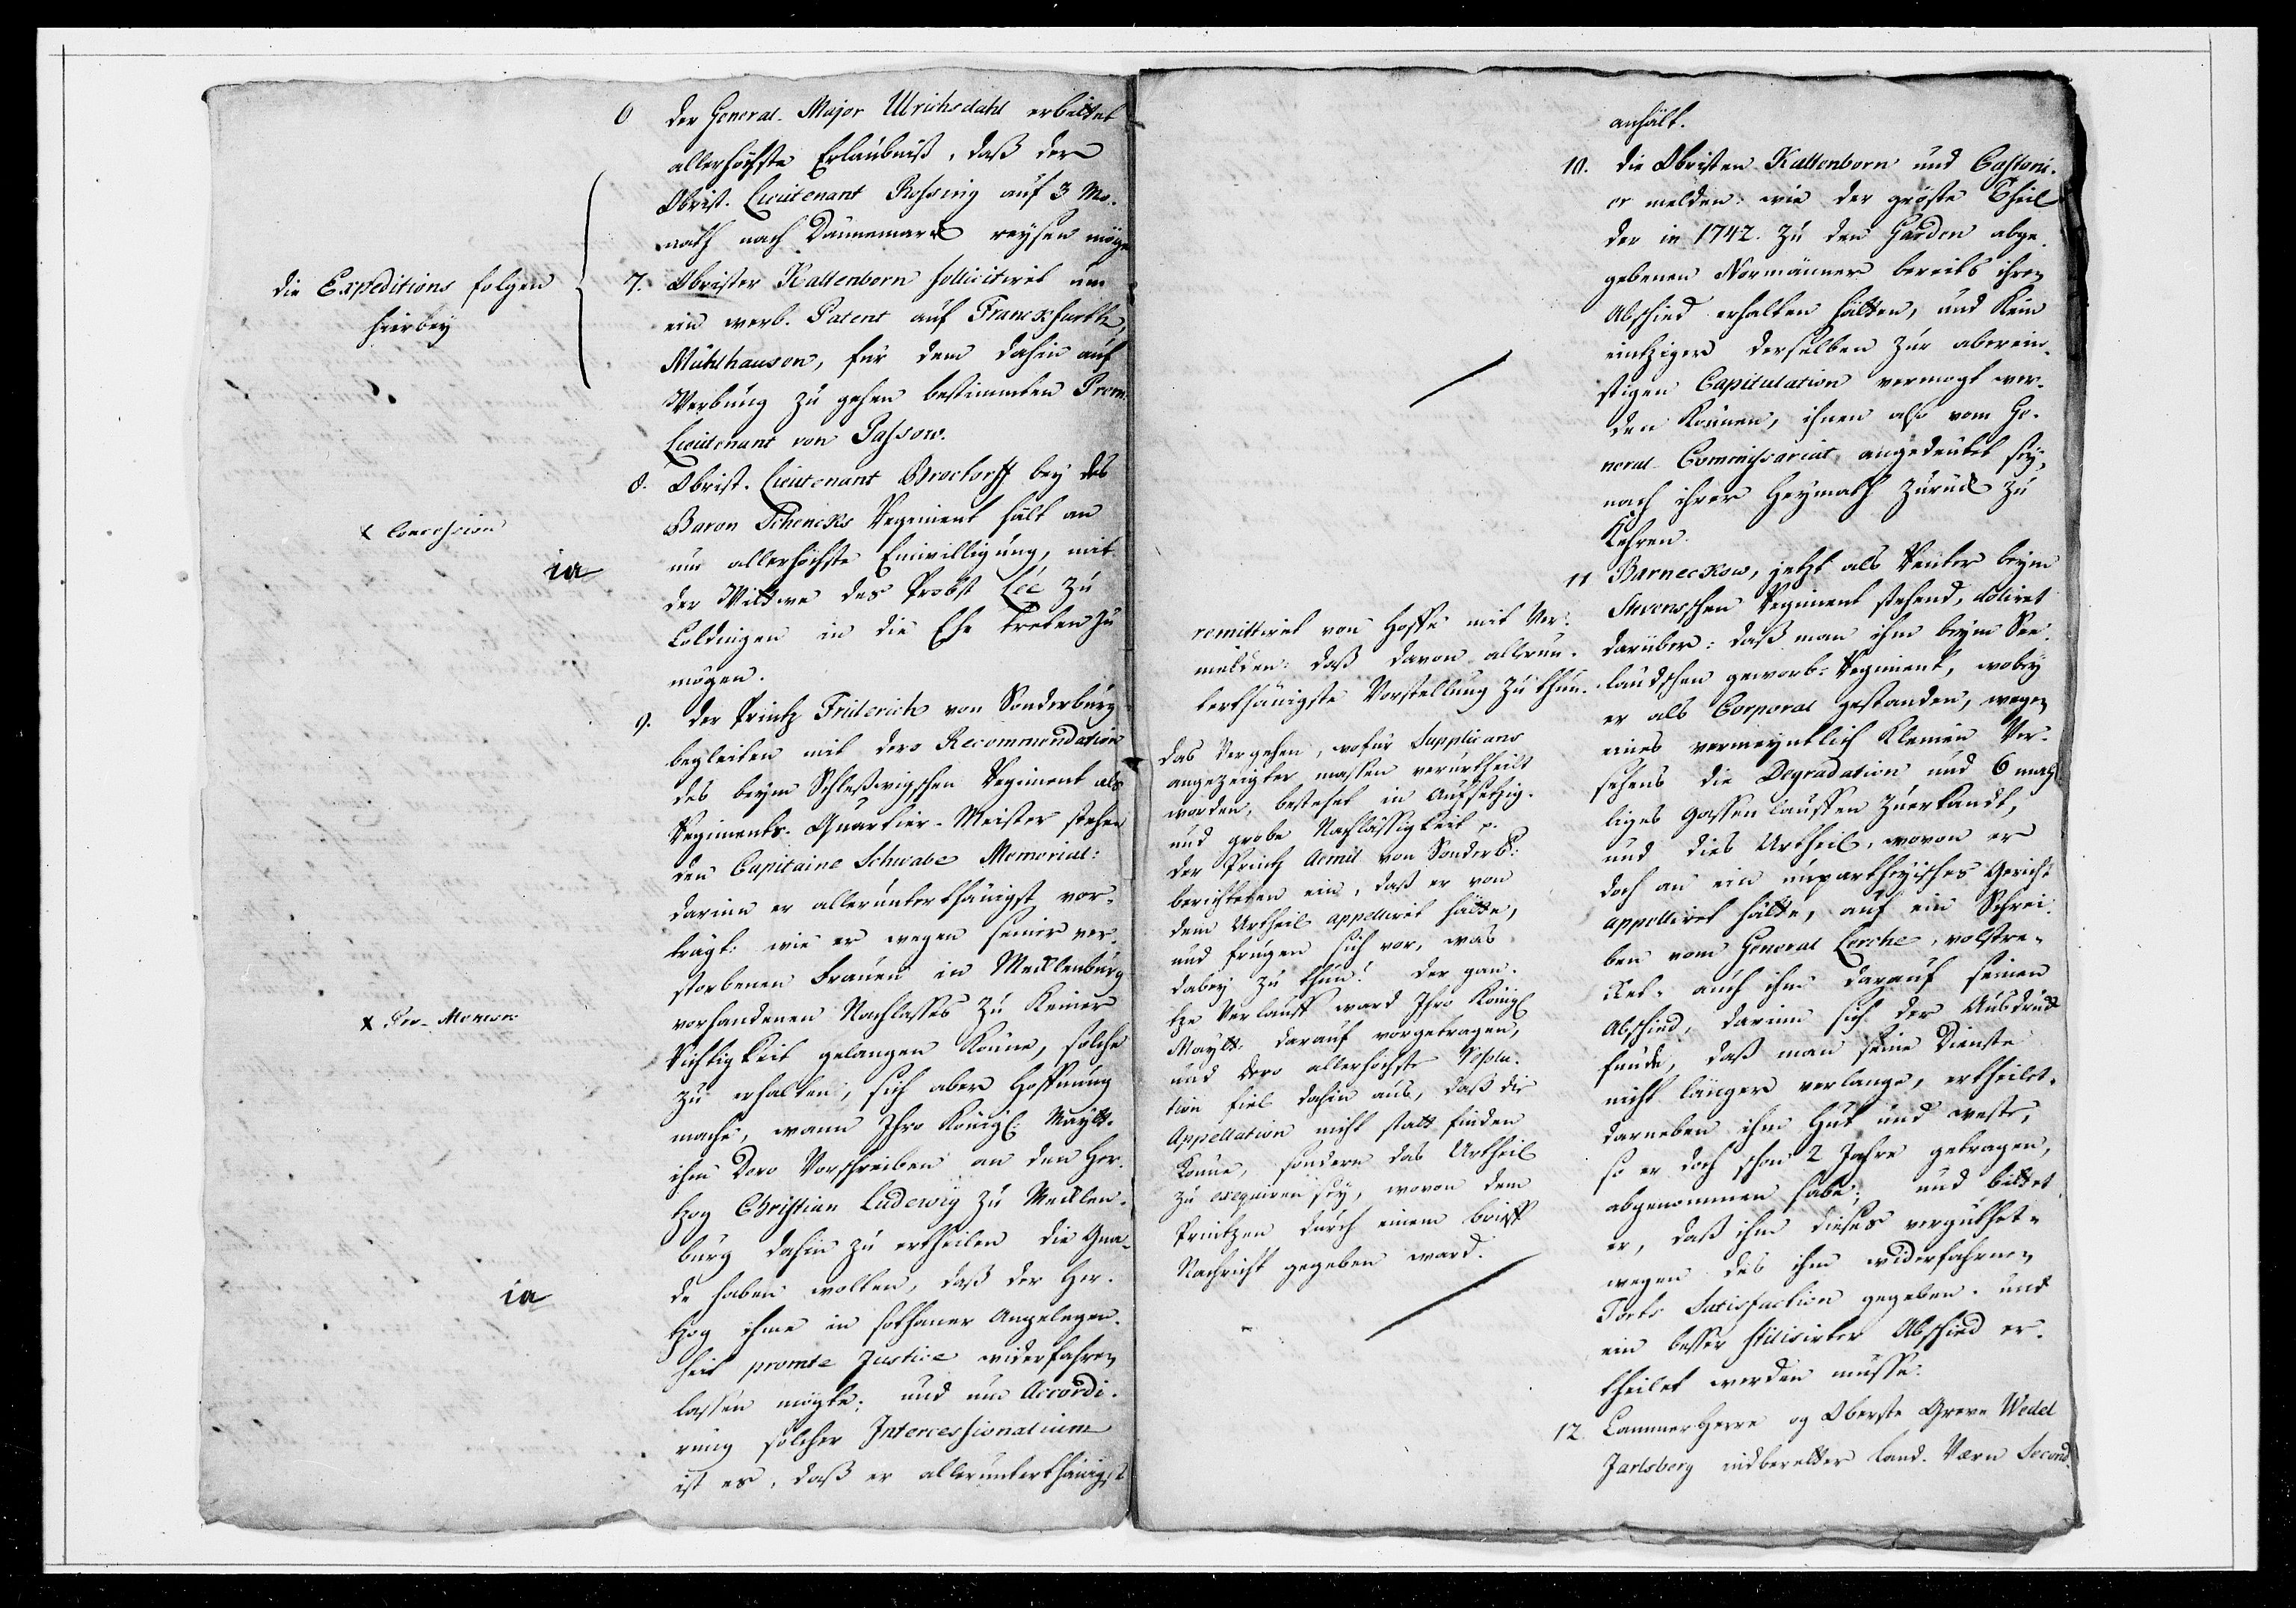 6 der General-Major Ulrichsdahl erbittet
allerhöchste Erlaubniß, daß der
Obrist-Lieutenant Rossing auf 3 Mo-
nath nach Dännemarck reysen möge
7. Obrister Kaltenborn sollicitiret um
ein werb-Patent auf Franckfurth,
Mühlhausen, für dem dahin auf
Werbung zu gehen bestimmten Prem.
Lieutenant von Passow.
die Expeditions folgen
hierbey
8. Obrist-Lieutenant Brockorff bey des
Baron Schencks Regiment hält an
um allerhöchste Einwilligung, mit
der Wittwe des Probst Lee zu
Coldingen in die Ehe treten zu
mögen.
x Concession
ia
9. der Printz Friderich von Sonderburg
begleiten mit dero Recommendation
des beym Schleßwigschen Regiment als
Regiments-Quartier-Meister stehen
den Capitaine Schwabe Memorial:
darinn er allerunterthänigst vor-
trägt: wie er wegen seiner ver-
storbenen Frauen in Mecklenburg
vorhandenen Nachlasses zu keiner
Richtigkeit gelangen könne, solche
zu erhalten, sich aber Hoffnung
mache, wann Ihro Königl: Maytt.
ihm Dero Vorschreiben an den Her-
tzog Christian Ludewig zu Mecklen-
burg dahin zu ertheilen die Gna-
de haben wolten, daß der Her-
tzog ihme in sothaner Angelegen-
heit promte Justice widerfahren
lassen mögte; und um Accordi-
rung solcher Intercessionalium
ist es, daß er allerunterthänigst
x Pro-Memor.
ia
anhält.
10. die Obristen Kaltenborn und Castoni-
er melden: wie der gröste Theil
der in 1742. zu den Garden abge-
gebenen Normänner bereits ihren
Abschied erhalten hätten, und kein
eintziger derselben zur aberein-
stigen Capitulation vermogt wer-
den können, ihnen also vom Ge-
neral-Commissariat angedeutet sey,
nach ihrer Heymath zurück zu
kehren.
11 Barneckow, jetzt als Reuter beym
schen Regiment stehend, doliret
darüber: daß man ihm beym See-
landschen geworb: Regiment, wobey
er als Corporal gestanden, wegen
eines vermeyntlich kleinen Ver-
sehens die Degradation und 6 mah
liges Gassenlauffen zuerkandt,
und dies Urtheil, wovon er
doch an ein unpartheyisches Gericht
appelliret hätte, auf ein Schrei-
ben vom General Lerche, volstre-
cket, auch ihm darauf seinen
Abschied, darinn sich der Ausdruck
funde, daß man seine Dienste
nicht länger verlange, ertheilet,
darneben ihm Hut und Weste,
so er doch schon 2 Jahre getragen,
abgenommen habe; und bittet
er, daß ihm dieses vergüthet,
wegen des ihm widerfahrnen
Torts Satisfaction gegeben, und
ein besser stilisirter Abschied er-
theilet werden müsse.
remittiret von Hoffe mit Ver-
melden: daß davon allerun-
terthänigste Vorstellung zu thun.
das Vergehen, wofür Supplicans
angezeigter massen verurtheilt
worden, bestehet in Aufsetzig-
und grobe Nachlässigkeit p.
der Printz Aemil von Sonderb:
berichteten ein, daß er von
dem Urtheil appelliret hätte,
und frugen sich vor, was
dabey zu thun? der gan-
tze Verlauff ward Ihro Königl
Maytt. darauf vorgetragen,
und dero allerhöchste Resolu-
tion fiel dahin aus, daß die
Appellation nicht statt finden
könne, sondern das Urtheil
zu exequiren sey, wovon dem
Printzen durch einem brieff
Nachricht gegeben ward.
12. Cammerherre og Oberste Greve Wedel
Jarlsberg indberetter Land-Værn Second-